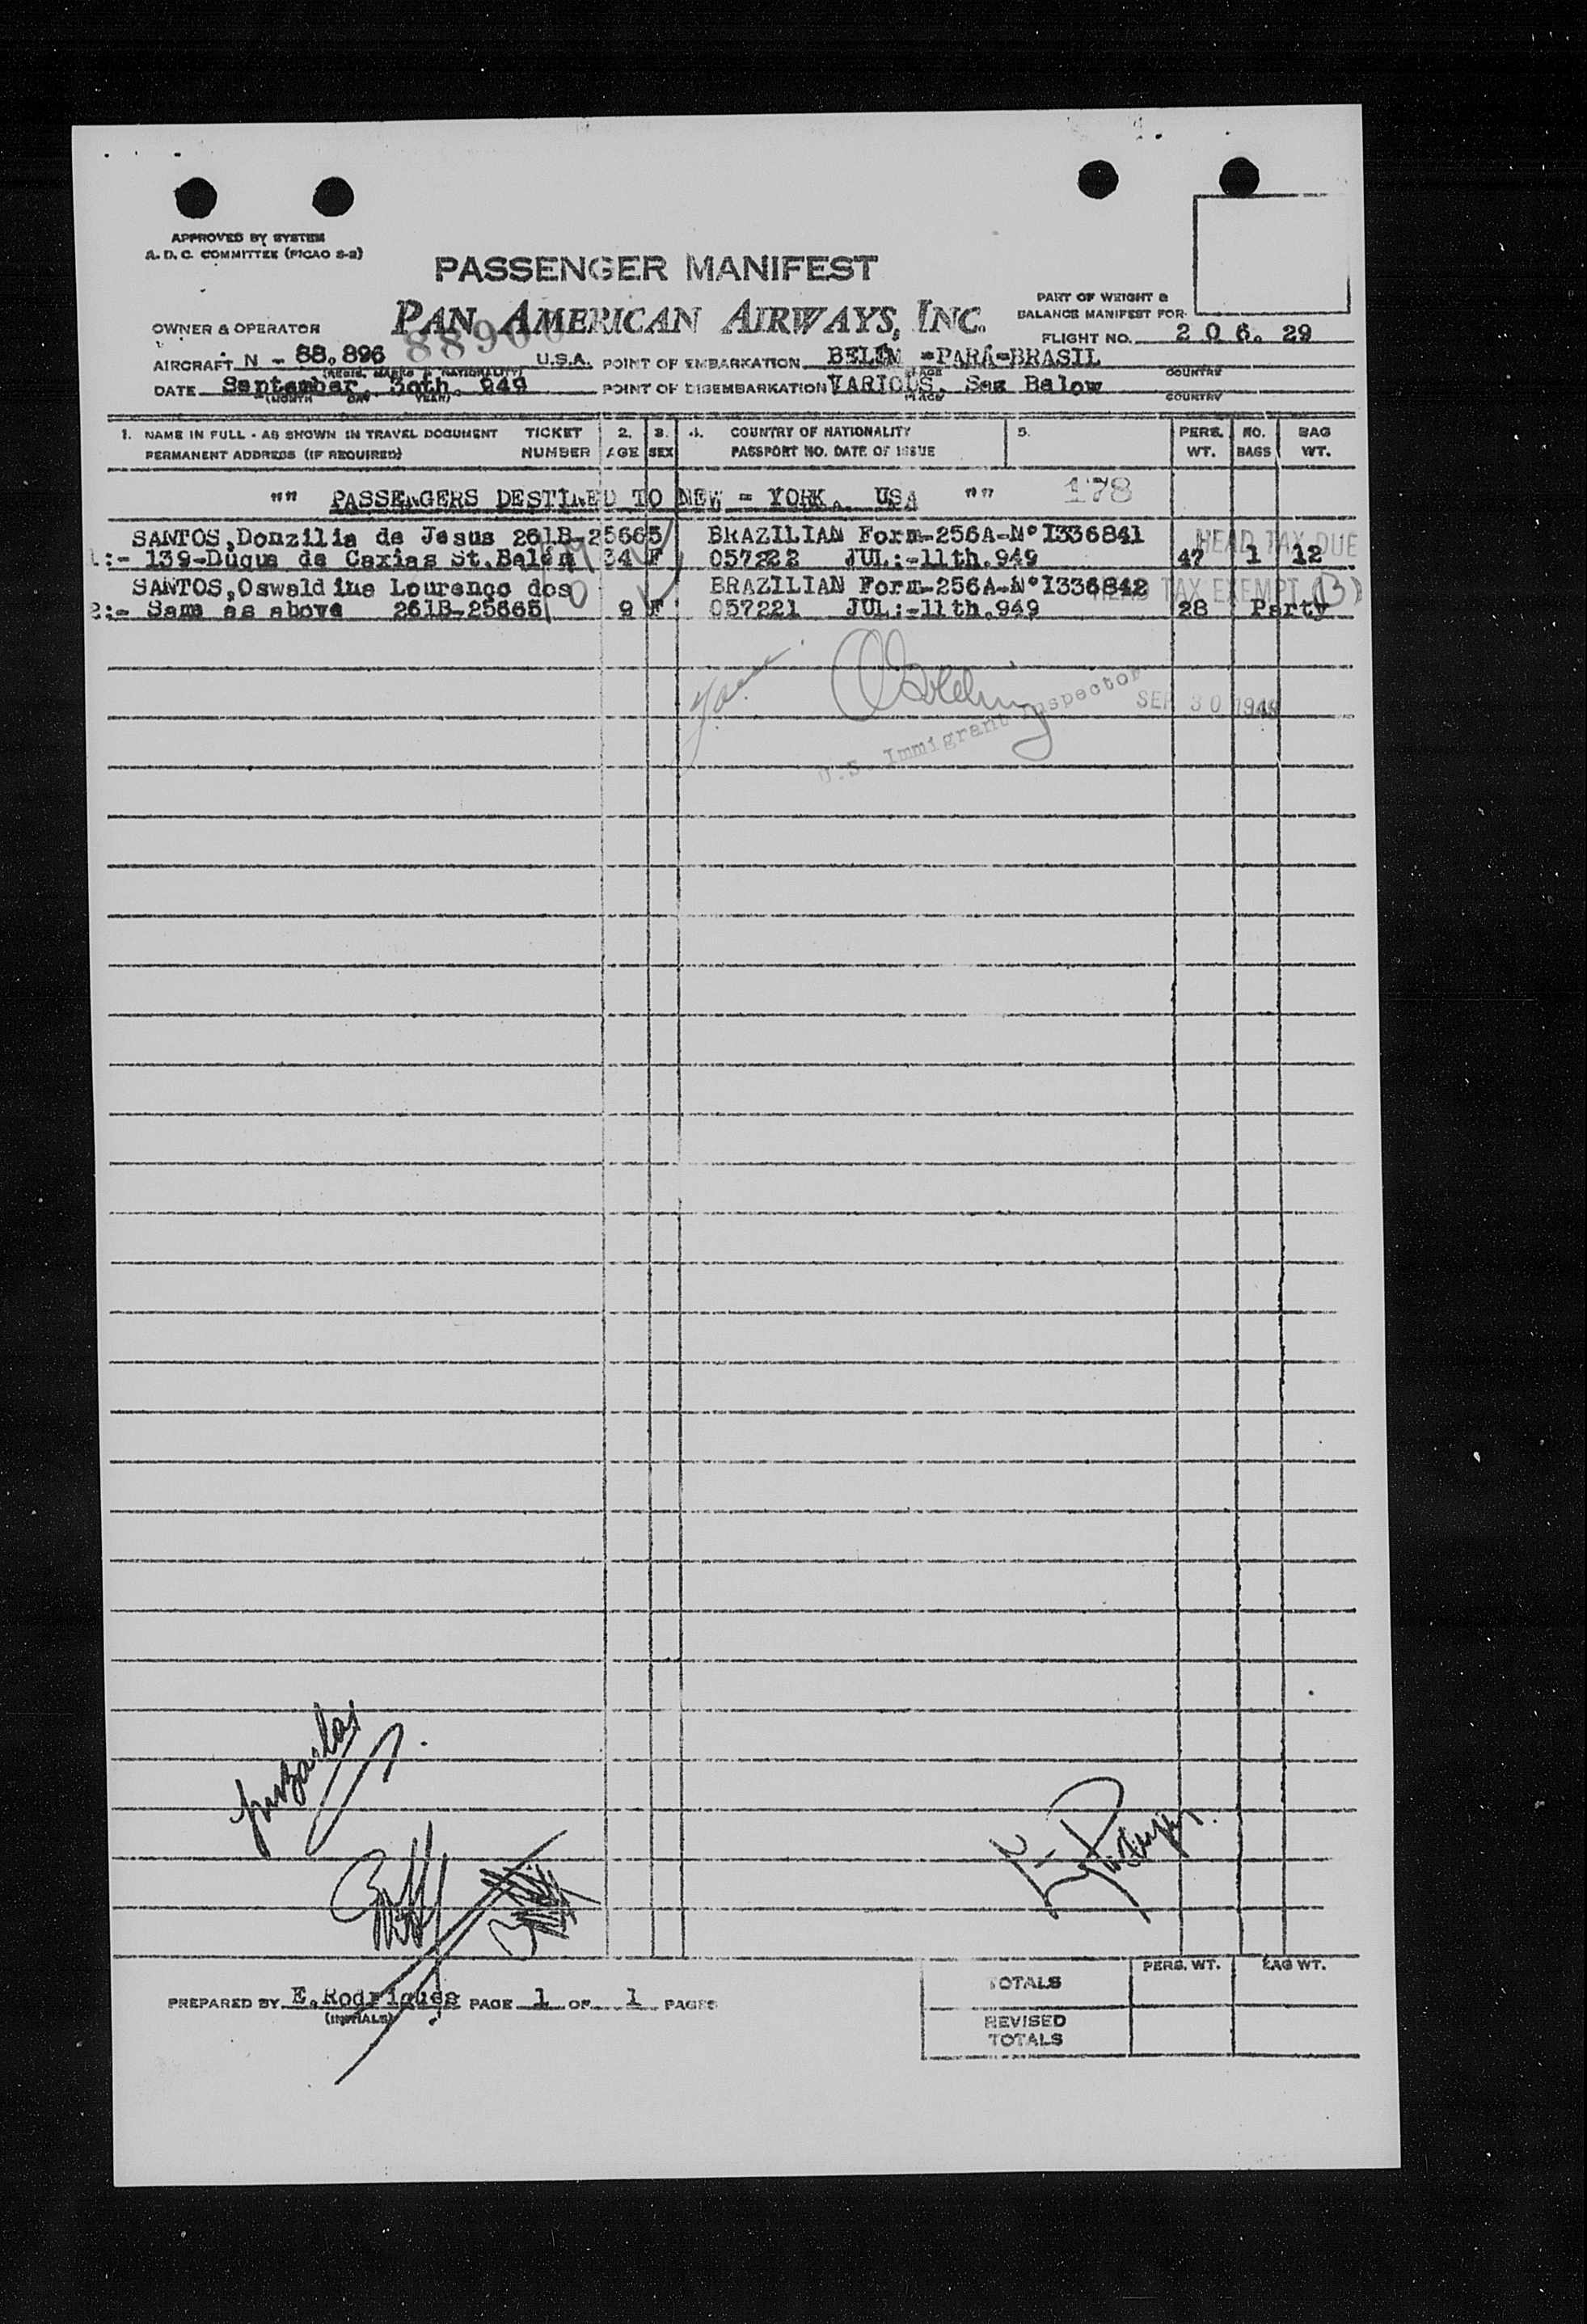 APPROVED BY SYSTEM
A. D. C. COMMITTEE (PICAO S-2)
PASSENGER MANIFEST
PAN AMERICAN AIRWAYS, INC.
PART OF WEIGHT &
BALANCE MANIFEST FOR
OWNER & OPERATOR
FLIGHT NO. 206. 29
AIRCRAFT N - 88.896 U.S.A. POINT OF EMBARKATION BELÉM =PARÁ=BRASIL
(REGIS. MARKS & NATIONALITY) PLACE COUNTRY
DATE September, 30th. 949 POINT OF DISEMBARKATION VARIOUS. See Below
(MONTH DAY YEAR) PLACE COUNTRY
1. NAME IN FULL - AS SHOWN IN TRAVEL DOCUMENT TICKET 2. 3. 4. COUNTRY OF NATIONALITY 5. PERS. NO. BAG
PERMANENT ADDRESS (IF REQUIRED) NUMBER AGE SEX PASSPORT NO. DATE OF ISSUE WT. BAGS WT.
"" PASSENGERS DESTINED TO NEW = YORK. USA "" 178
SANTOS,Donzilia de Jesus 261B-25665 BRAZILIAN Form-256A-Nº I336841 HEAD TAX DUE
1:- 139-Duque de Caxias St.Belém 34 F 057222 JUL:-11th.949 47 1 12
SANTOS,Oswaldina Lourenço dos BRAZILIAN Form-256A-Nº I336842 HEAD TAX EXEMPT (B)
2:- Same as above 261B-25665 9 F 057221 JUL:-11th.949 28 Party
U.S. Immigrant Inspector
SEP 30 1949
PREPARED BY E.Rodrigues PAGE 1 OF 1 PAGES
(INITIALS)
PERS. WT. BAG WT.
TOTALS
REVISED
TOTALS